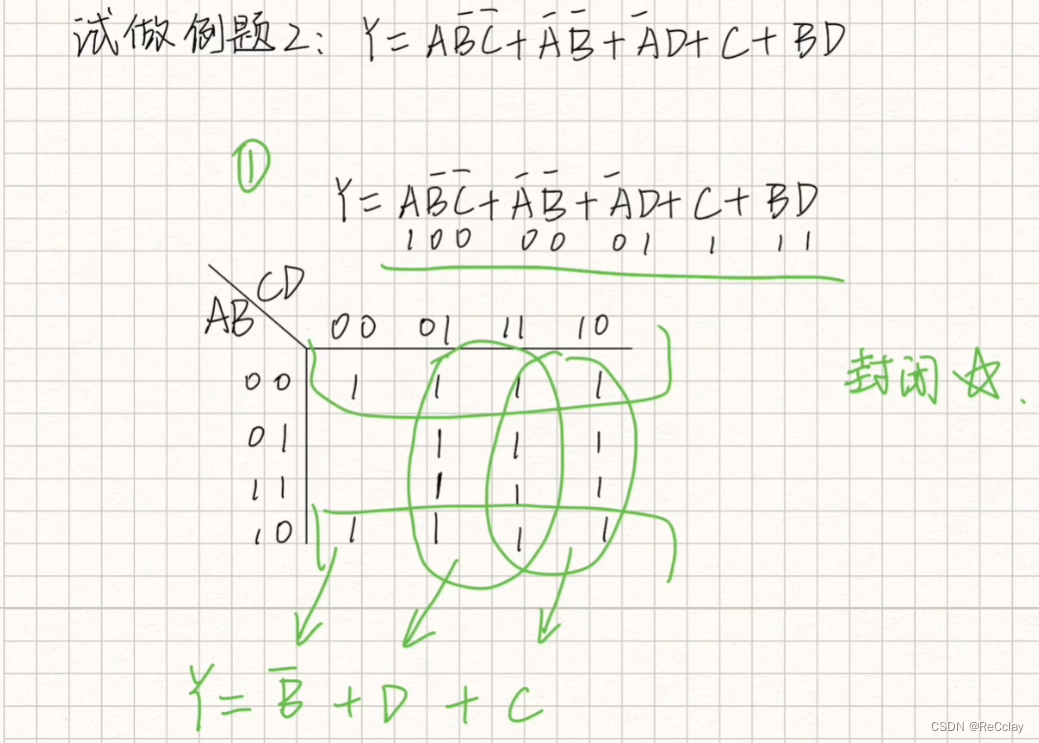 试做例题2: Y = AB̅C̅ + A̅B̅ + A̅D + C + BD
①
Y = AB̅C̅ + A̅B̅ + A̅D + C + BD
1 0 0 0 0 0 1 1 1 1
CD
AB
00 01 11 10
00 1 1 1 1
01 1 1 1
11 1 1 1
10 1 1 1 1
封闭☆.
Y = B̅ + D + C
CSDN @ReCclay